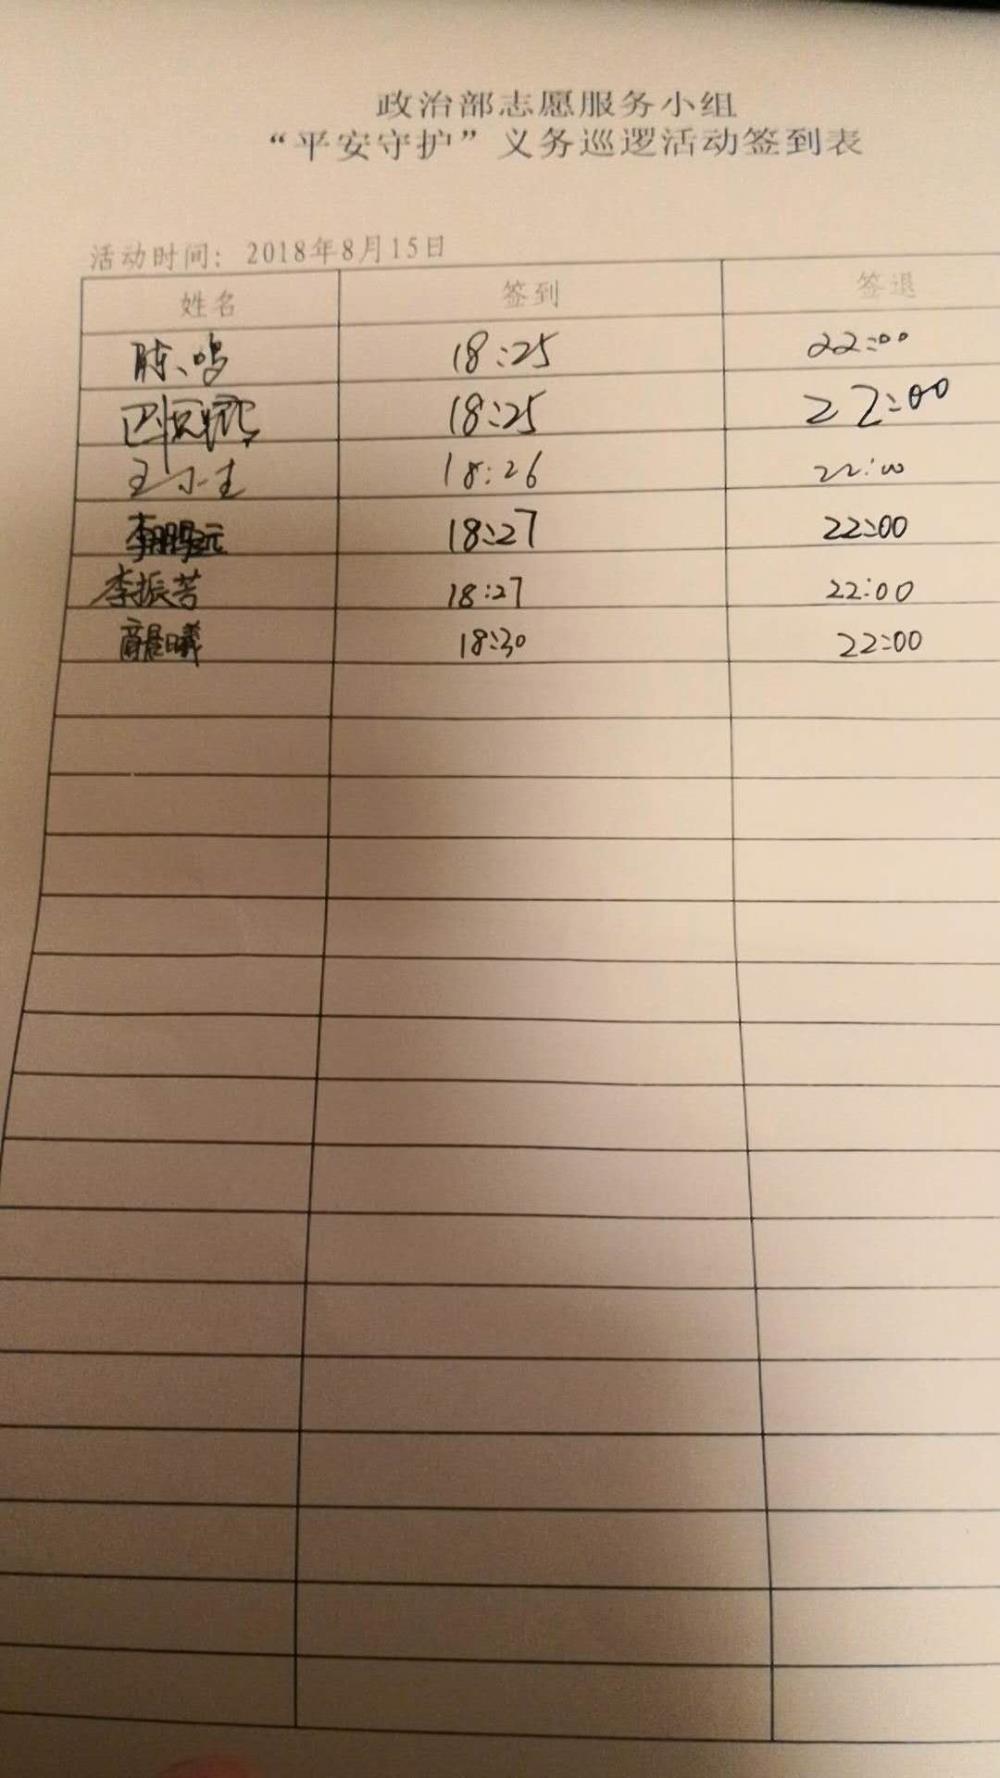 政治部志愿服务小组
“平安守护”义务巡逻活动签到表
活动时间：2018年8月15日
姓名 签到 签退
陈鸣 18:25 22:00
18:25 22:00
王小主 18:26 22:00
李鹏远 18:27 22:00
李振芳 18:27 22:00
商晨曦 18:30 22:00